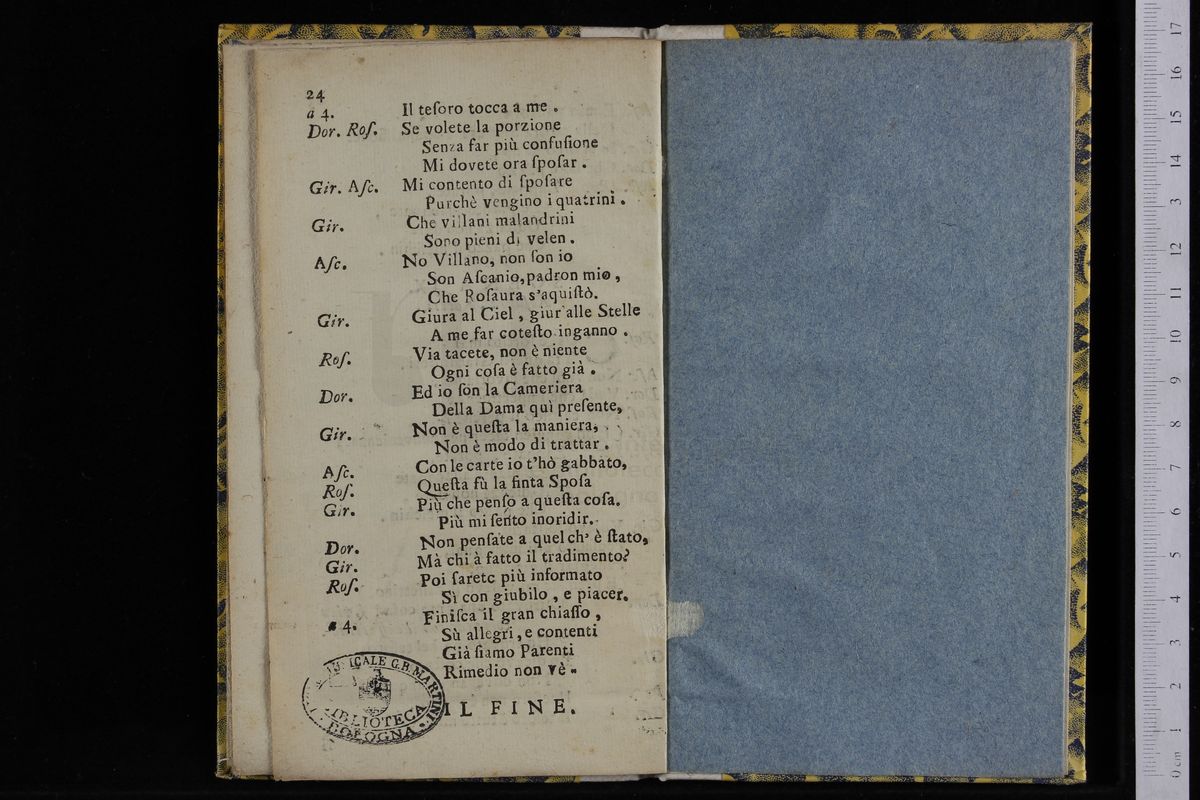 24
a 4. Il teſoro tocca a me .
Dor. Roſ. Se volete la porzione
Senza far più confuſione
Mi dovete ora ſpoſar .
Gir. Aſc. Mi contento di ſpoſare
Purchè vengino i quatrini .
Gir. Che villani malandrini
Sono pieni di velen .
Aſc. No Villano, non ſon io
Son Aſcanio, padron mio ,
Che Roſaura s'aquiſtò.
Gir. Giura al Ciel , giur'alle Stelle
A me far coteſto inganno .
Roſ. Via tacete, non è niente
Ogni coſa è fatto già .
Dor. Ed io ſon la Cameriera
Della Dama quì preſente,
Gir. Non è queſta la maniera,
Non è modo di trattar .
Aſc. Con le carte io t'hò gabbato,
Roſ. Queſta fù la finta Spoſa
Gir. Più che penſo a queſta coſa.
Più mi ſento inoridir.
Dor. Non penſate a quel ch' è ſtato,
Gir. Mà chi à fatto il tradimento?
Roſ. Poi ſarete più informato
Sì con giubilo , e piacer.
a 4. Finiſca il gran chiaſſo ,
Sù allegri , e contenti
Già ſiamo Parenti
Rimedio non vè .
IL FINE.
G.B. MARTINI
BIBLIOTECA
BOLOGNA
0 cm 1 2 3 4 5 6 7 8 9 10 11 12 13 14 15 16 17